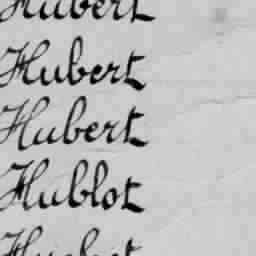 Hubert
Hubert
Hubert
Hublot